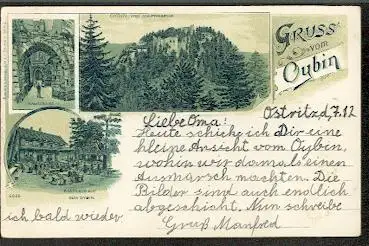 GRUSS
vom
Oybin
Ostritz d, 7.12
Liebe Oma!
Heute schicke ich Dir eine
kleine Ansicht vom Oybin,
wohin wir damals einen
Ausmarsch machten. Die
Bilder sind auch endlich
abgeschickt. Nun schreibe
ich bald wieder.
Gruß Manfred